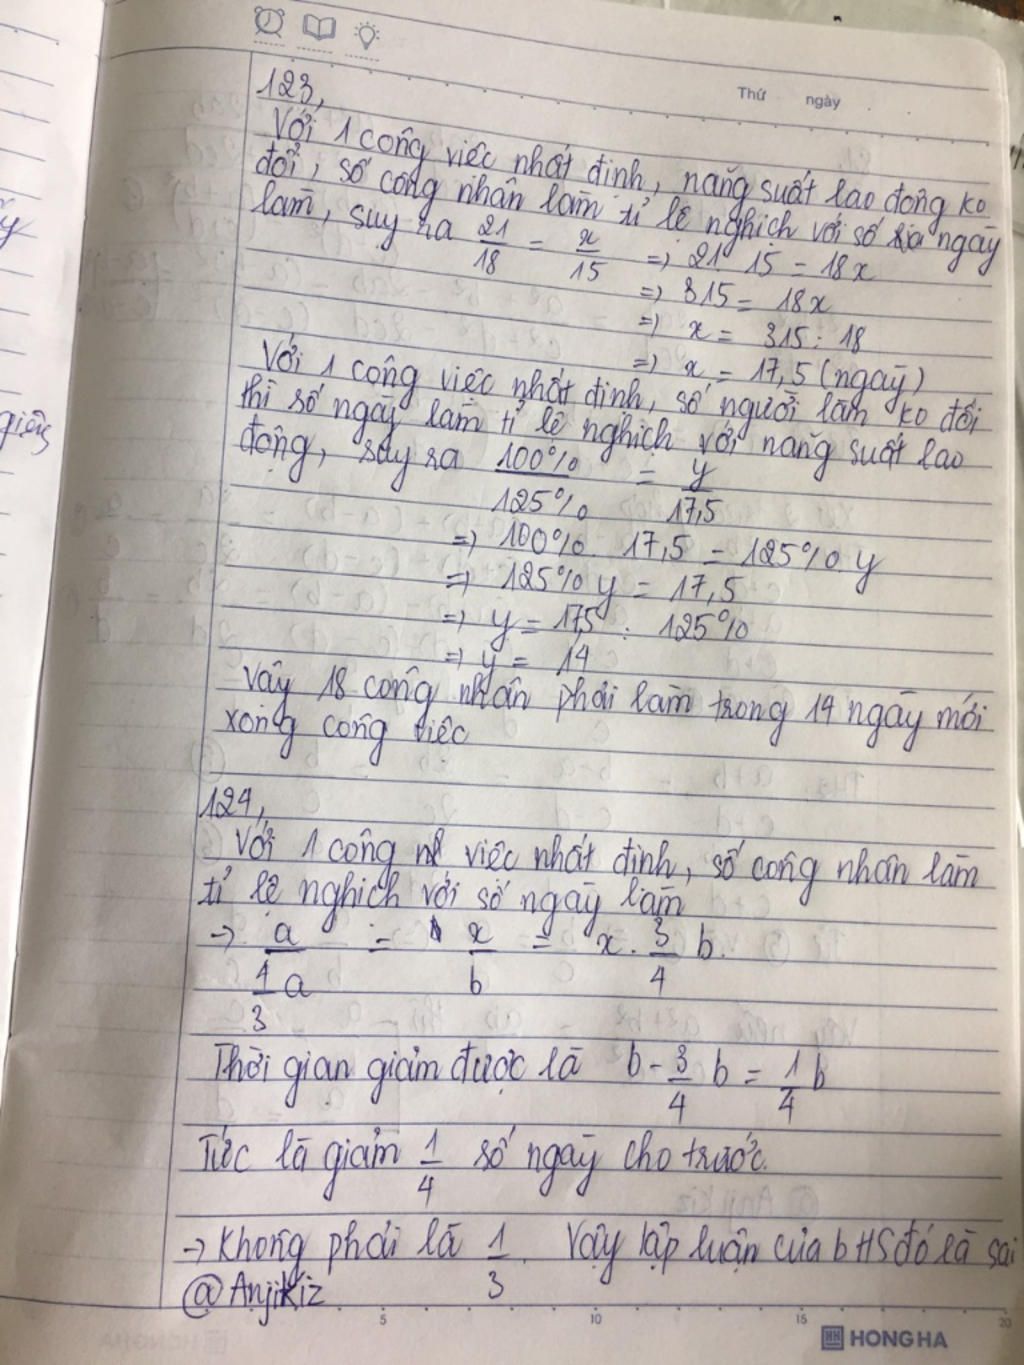 Thứ ngày
123,
Với 1 công việc nhất định, năng suất lao động ko
đổi, số công nhân làm tỉ lệ nghịch với số ngày
làm, suy ra 21/18 = x/15 => 21. 15 = 18x
=> 315 = 18x
=> x = 315 : 18
=> x = 17,5 (ngày)
Với 1 công việc nhất định, số người làm ko đổi
thì số ngày làm tỉ lệ nghịch với năng suất lao
động, suy ra 100%/125% = y/17,5
=> 100%. 17,5 = 125%.y
=> 125% y = 17,5
=> y = 17,5 : 125%
=> y = 14
Vậy 18 công nhân phải làm trong 14 ngày mới
xong công việc
124,
Với 1 công việc nhất định, số công nhân làm
tỉ lệ nghịch với số ngày làm
→ a / 1/3 a = x/b = x. 3/4 b.
Thời gian giảm được là b - 3/4 b = 1/4 b
Tức là giảm 1/4 số ngày cho trước.
→ Không phải là 1/3. Vậy lập luận của b HS đó là sai
@AnjiKiz
giêng
5 10 15 20
HH HONG HA